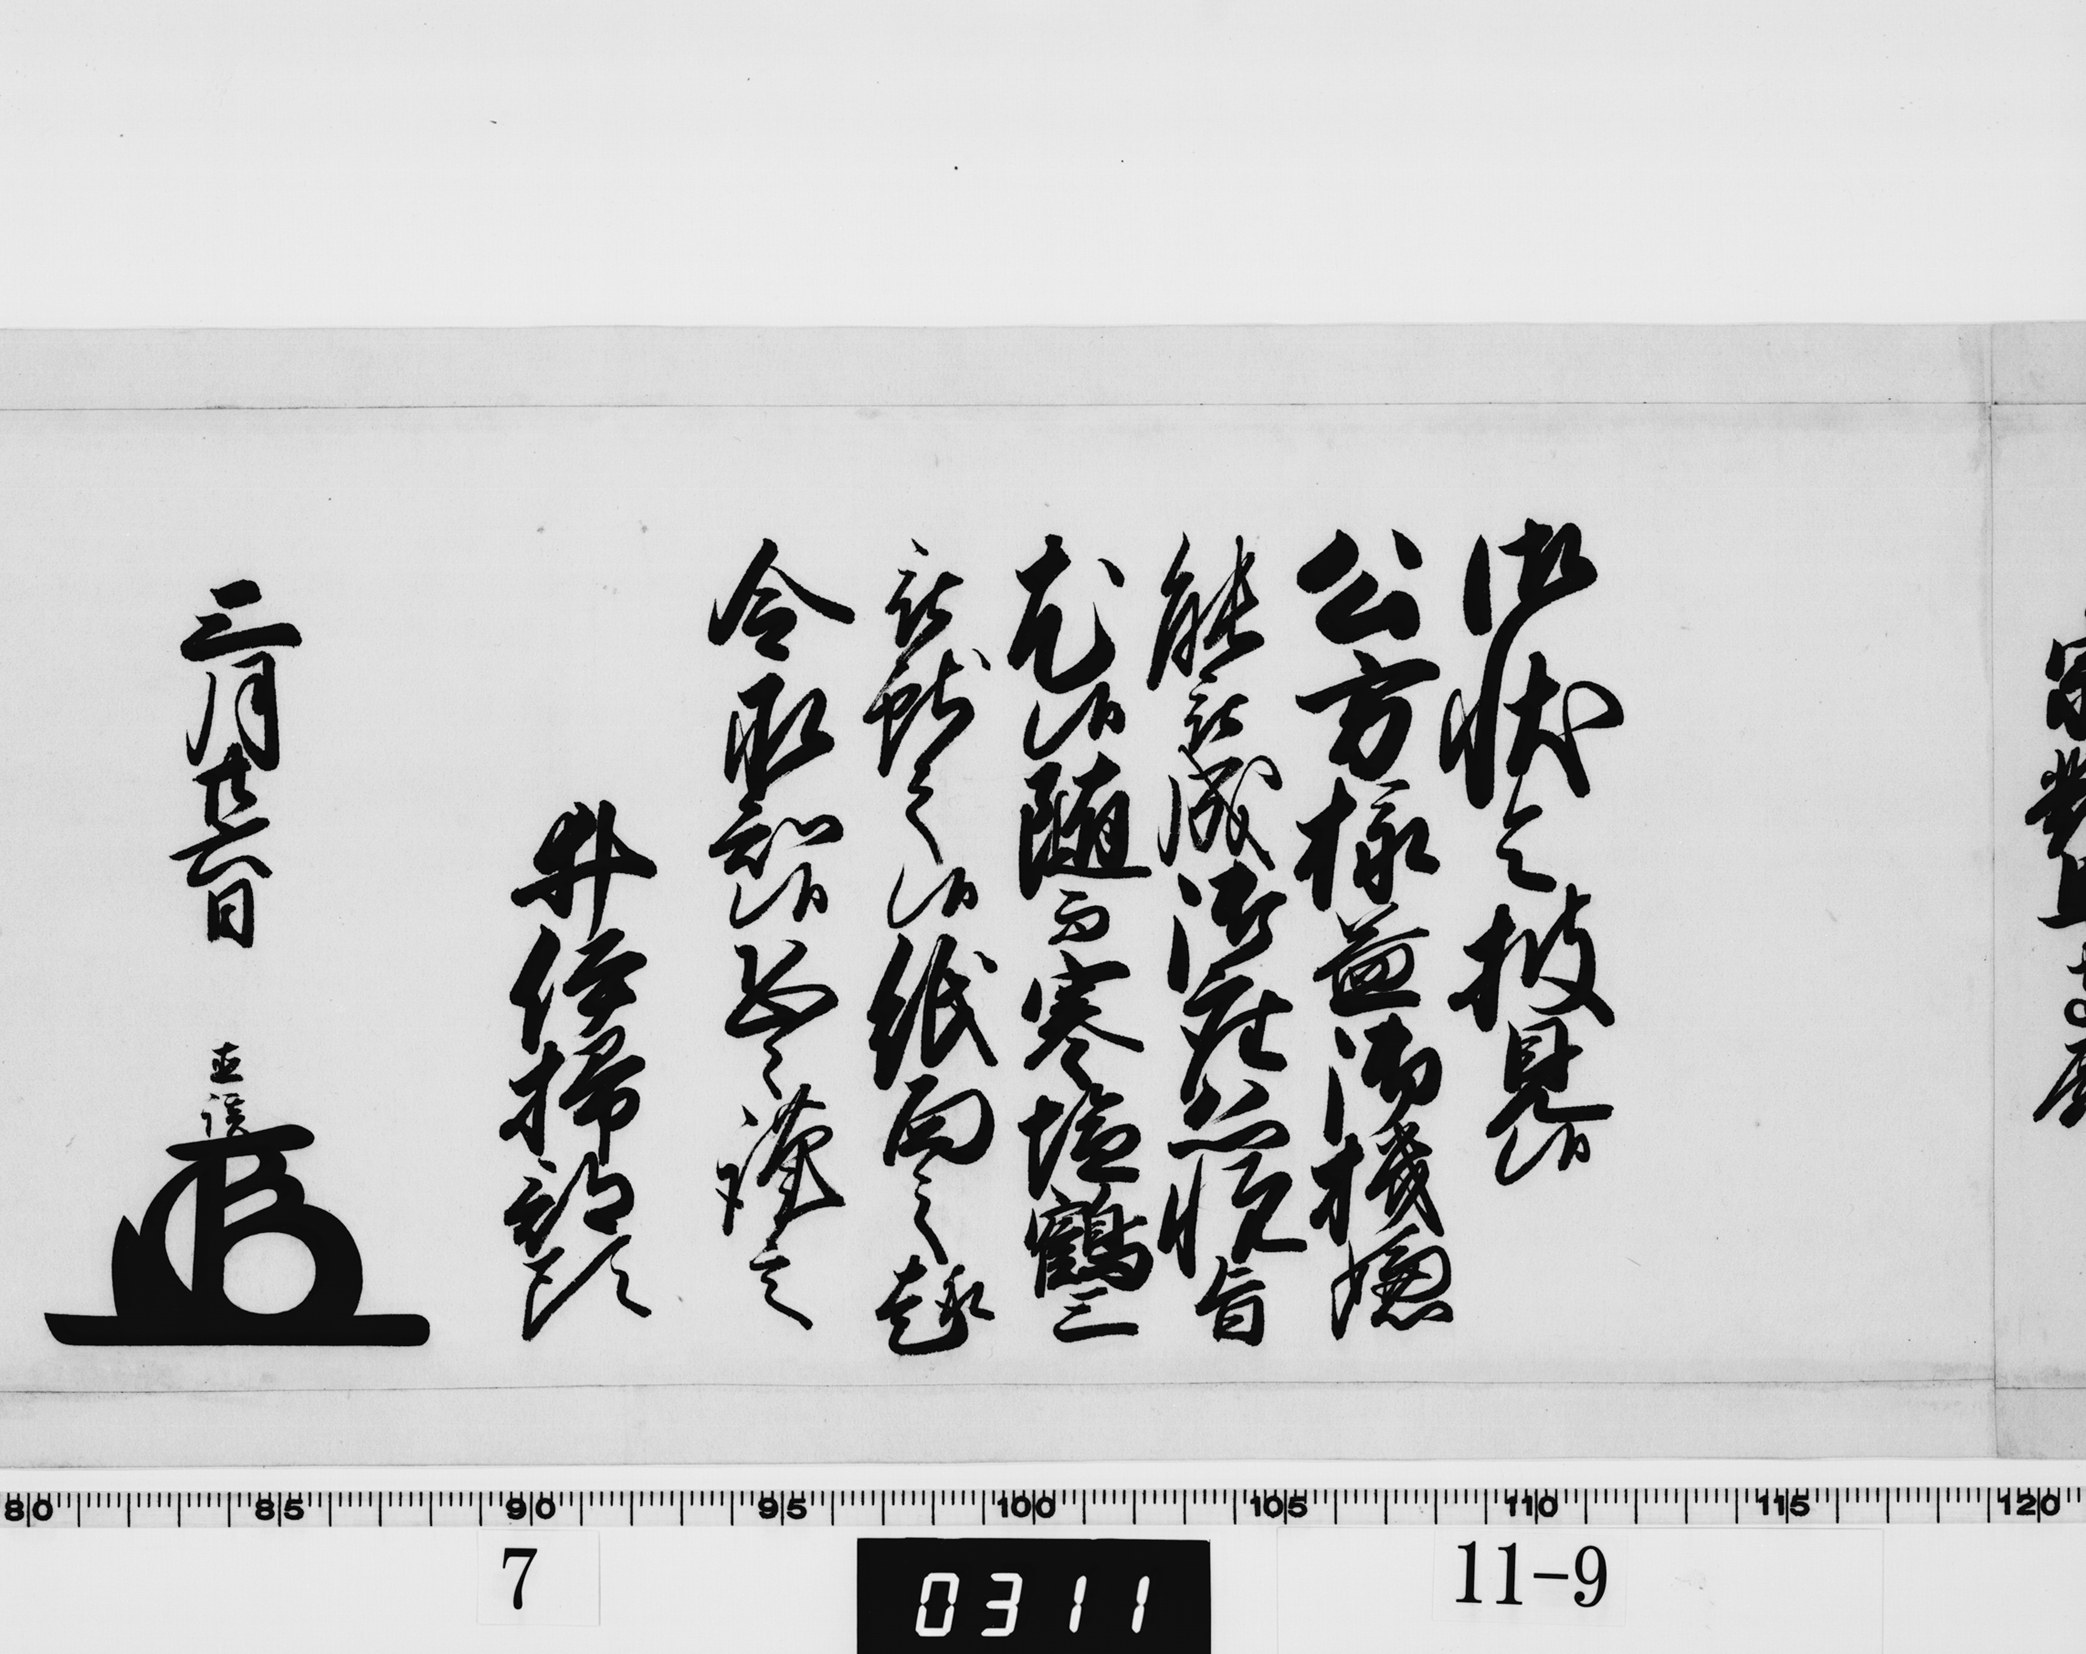 宗對馬守殿
御状令披見候
公方様益御機嫌
能被成御座恐悦旨
尤候随而寒塩鶴三
被献之候紙面之趣
令承知候恐々謹言
井伊掃部頭
三月廿六日 直該
80 85 90 95 100 105 110 115 120
7 0311 11-9